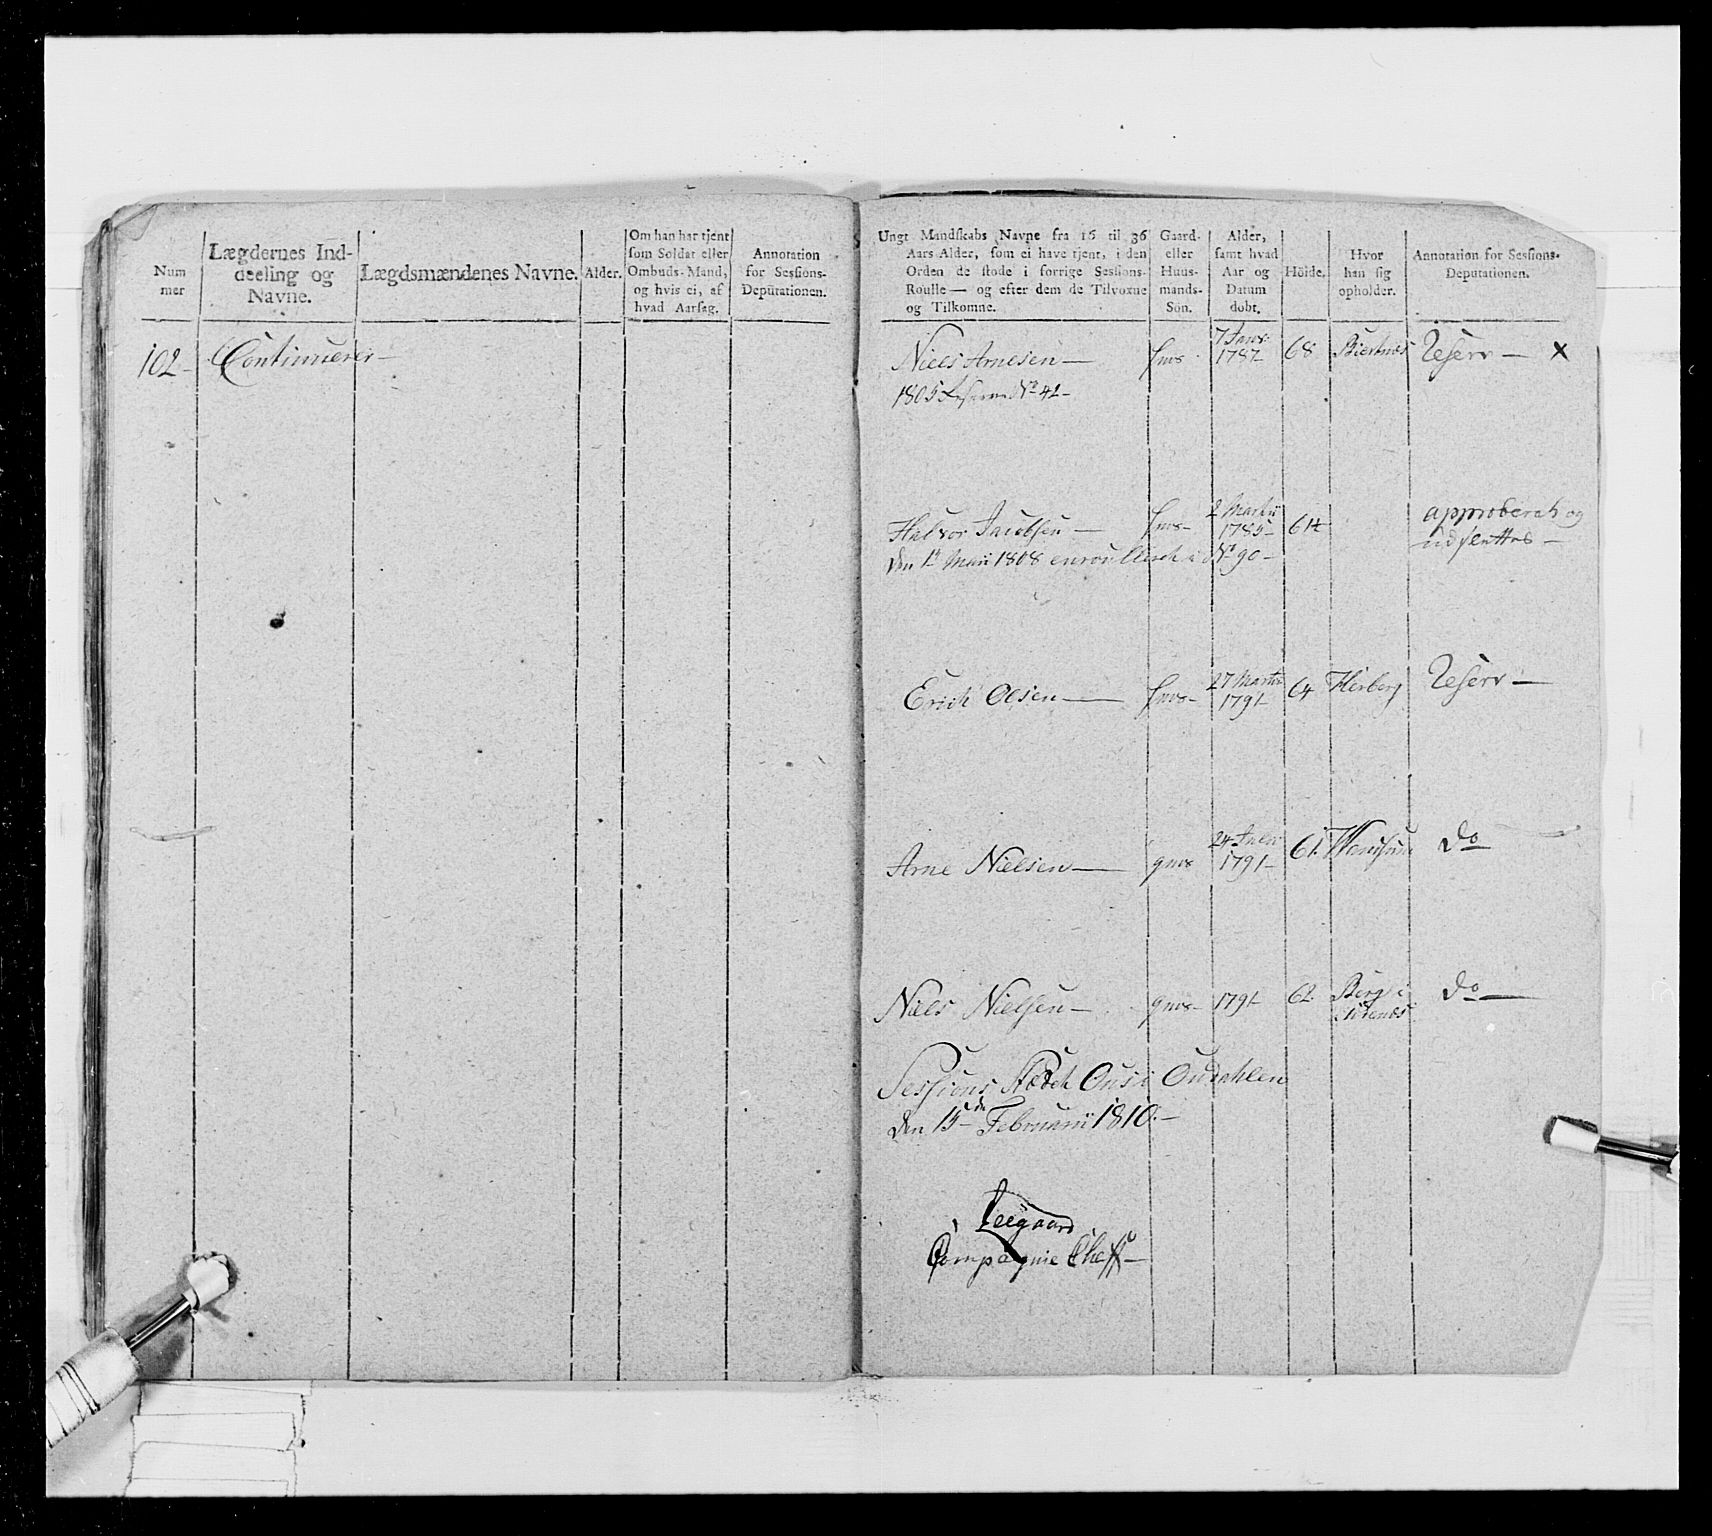 Num
mer
Lægdernes Ind-
deeling og
Navne.
Lægdsmændenes Navne.
Alder.
Om han har tjent
som Soldat eller
Ombuds-Mand,
og hvis ei, af
hvad Aarsag.
Annotation
for Sessions-
Deputationen.
102 - Continuerer -
Ungt Mandskabs Navne fra 16 til 36
Aars Alder, som ei have tjent, i den
Orden de stode i forrige Sessions-
Roulle — og efter dem de Tilvoxne
og Tilkomne.
Gaard-
eller
Huus-
mands-
Sön.
Alder,
samt hvad
Aar og
Datum
dobt.
Hölde.
Hvor
han sig
opholder.
Annotation for Sessions-
Deputationen.
Niels Arnesen —
7 Janv:
1787
68
Reserv — X
1805 Reserve No 42 -
Halvor Jacobsen —
2 Martii
1785
61½
approberet og
udslettes —
den 1t Maii 1808 enroulleret i No 90 -
Erich Olsen —
27 Martii
1791
64
Herberg
Reserv —
Arne Nielsen —
1791 -
61
do
Niels Nielsen —
1791
62
Berg i
do —
Sessions Stædet Ous i Oudahlen
den 15de Februarii 1810. -
Leegaard
Compagnie Cheff —